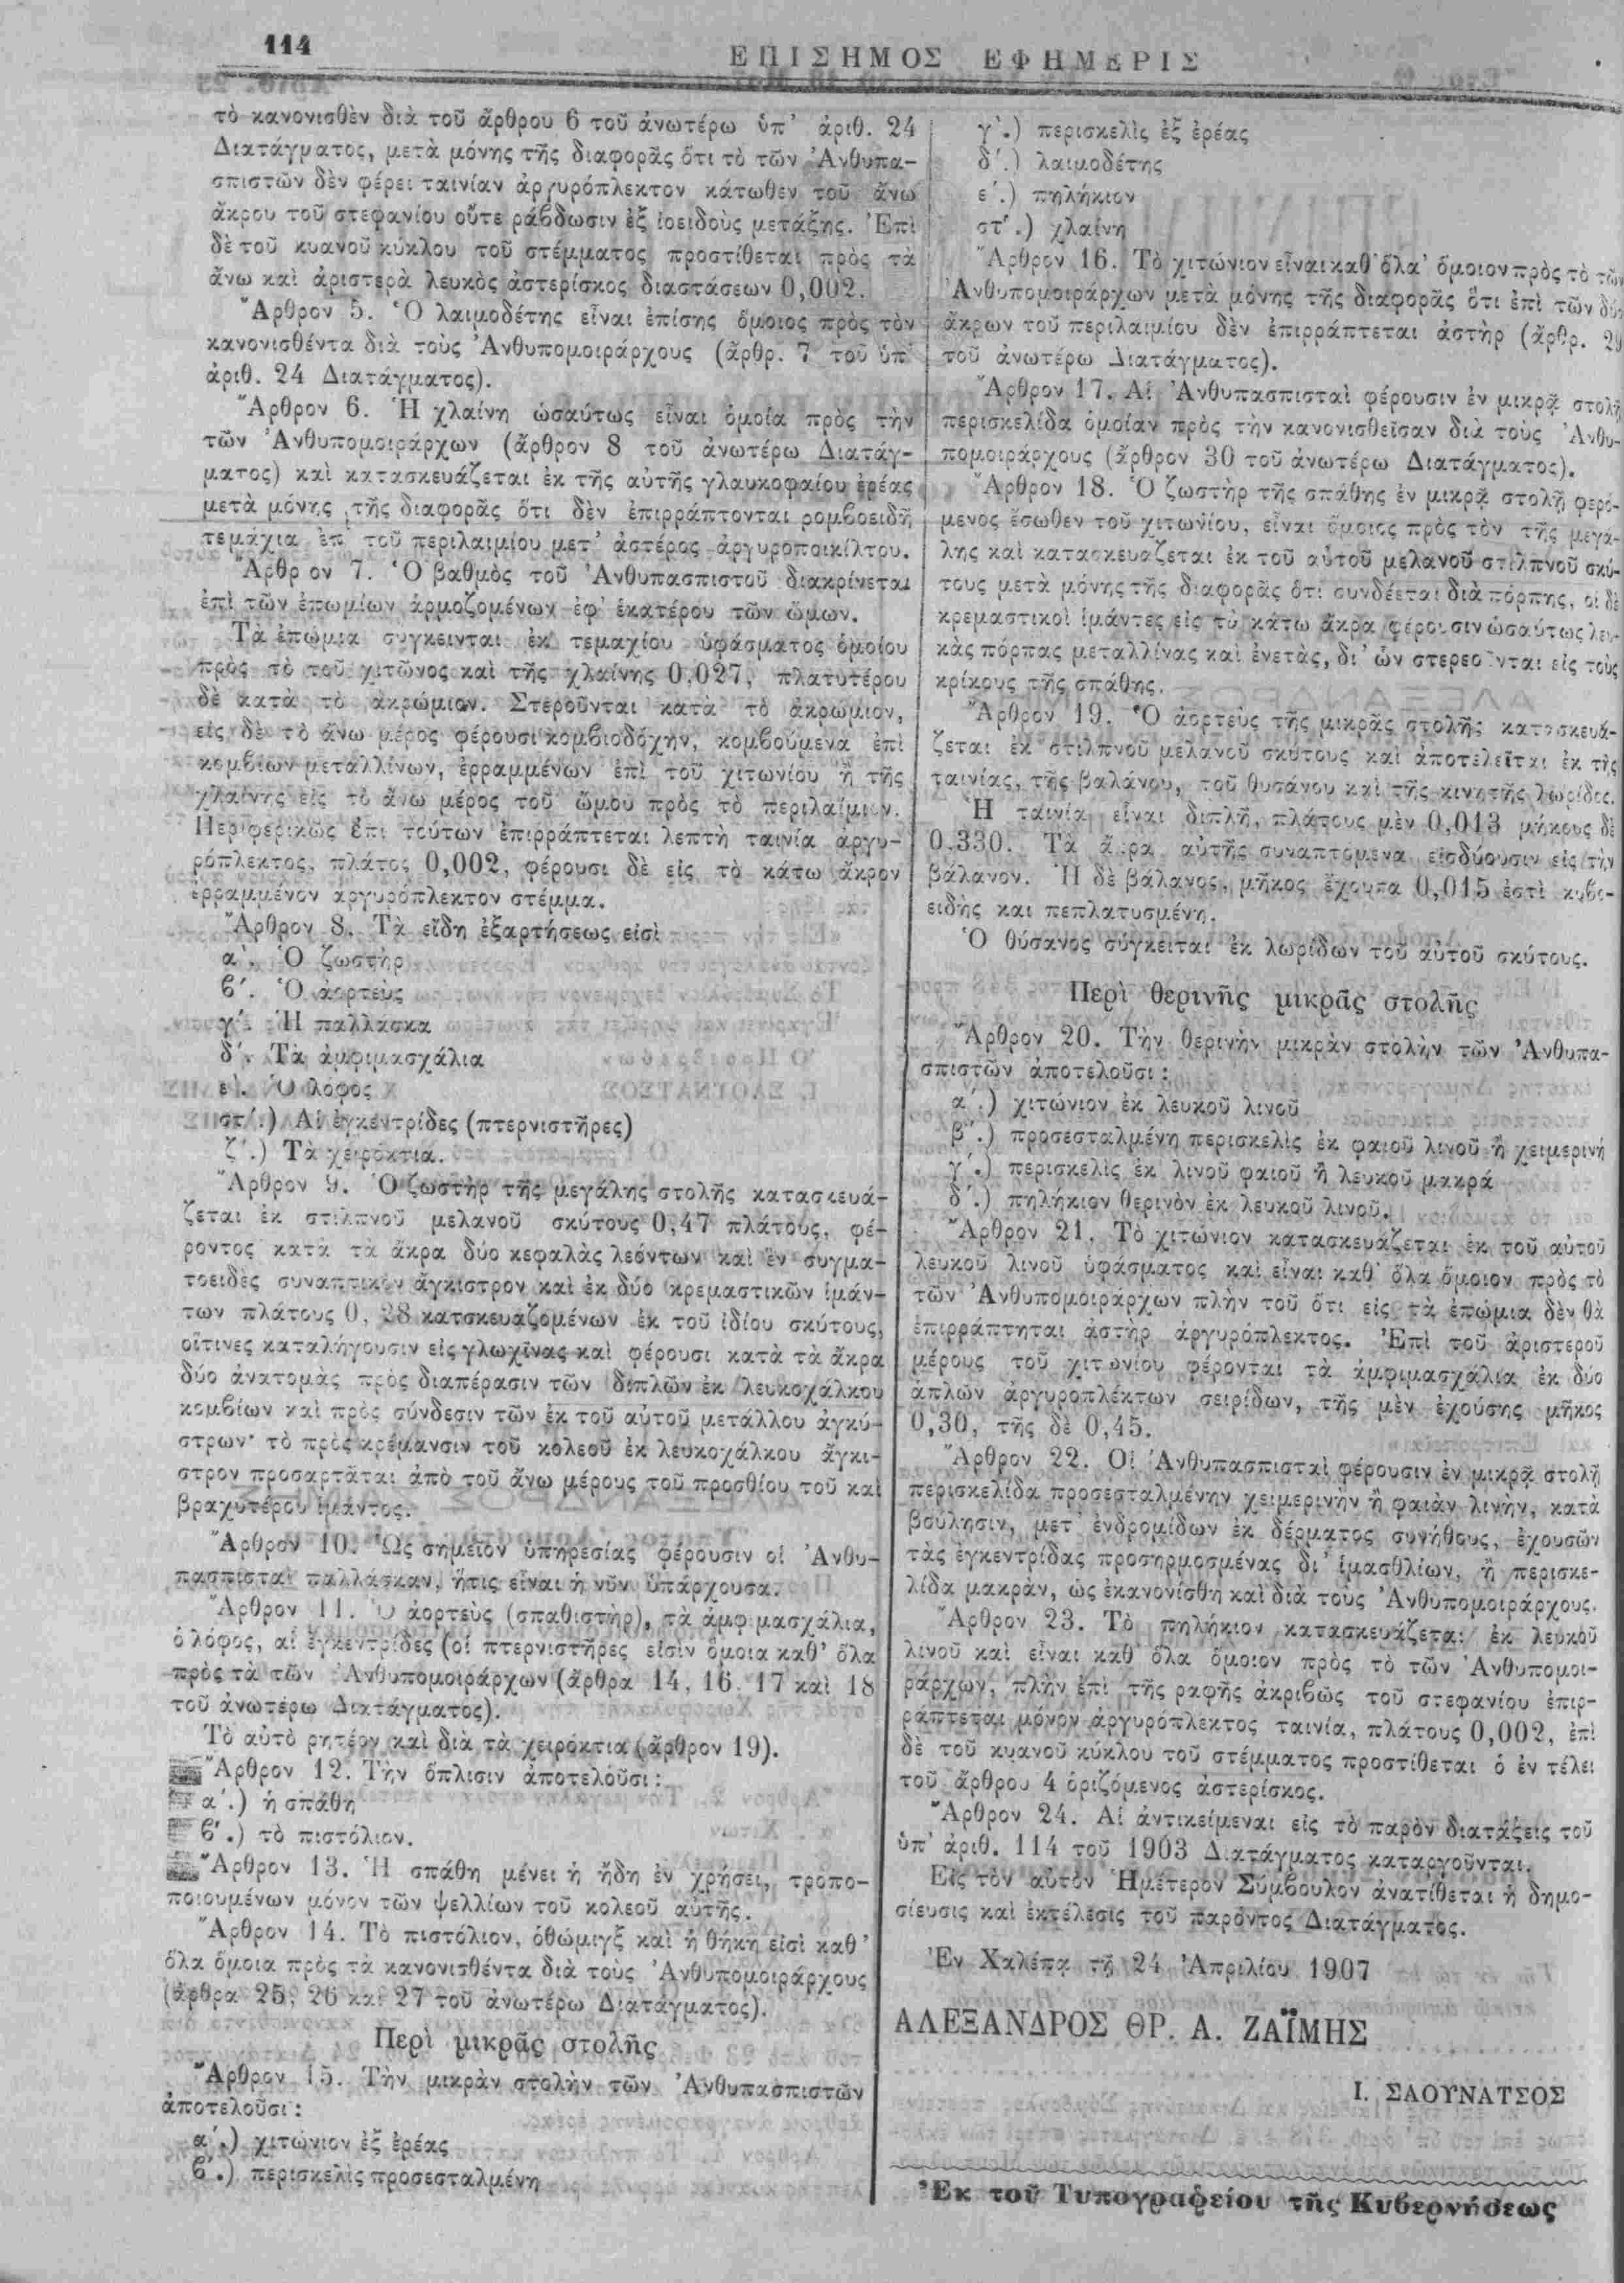 114
ΕΠΙΣΗΜΟΣ ΕΦΗΜΕΡΙΣ
τὸ κανονισθὲν διὰ τοῦ ἄρθρου 6 τοῦ ἀνωτέρω ὑπ' ἀριθ. 24
Διατάγματος, μετὰ μόνης τῆς διαφορᾶς ὅτι τὸ τῶν Ἀνθυπα-
σπιστῶν δὲν φέρει ταινίαν ἀργυρόπλεκτον κάτωθεν τοῦ ἄνω
ἄκρου τοῦ στεφανίου οὔτε ράβδωσιν ἐξ ἰοειδοῦς μετάξης. Ἐπὶ
δὲ τοῦ κυανοῦ κύκλου τοῦ στέμματος προστίθεται πρὸς τὰ
ἄνω καὶ ἀριστερὰ λευκὸς ἀστερίσκος διαστάσεων 0,002.
Ἄρθρον 5. Ὁ λαιμοδέτης εἶναι ἐπίσης ὅμοιος πρὸς τὸν
κανονισθέντα διὰ τοὺς Ἀνθυπομοιράρχους (ἄρθρ. 7 τοῦ ὑπ'
ἀριθ. 24 Διατάγματος).
Ἄρθρον 6. Ἡ χλαίνη ὡσαύτως εἶναι ὁμοία πρὸς τὴν
τῶν Ἀνθυπομοιράρχων (ἄρθρον 8 τοῦ ἀνωτέρω Διατάγ-
ματος) καὶ κατασκευάζεται ἐκ τῆς αὐτῆς γλαυκοφαίου ἐρέας
μετὰ μόνης τῆς διαφορᾶς ὅτι δὲν ἐπιρράπτονται ρομβοειδῆ
τεμάχια ἐπ' τοῦ περιλαιμίου μετ' ἀστέρος ἀργυροποικίλτου.
Ἄρθρ ον 7. Ὁ βαθμὸς τοῦ Ἀνθυπασπιστοῦ διακρίνεται
ἐπὶ τῶν ἐπωμίων ἁρμοζομένων ἐφ' ἑκατέρου τῶν ὤμων.
Τὰ ἐπώμια σύγκεινται ἐκ τεμαχίου ὑφάσματος ὁμοίου
πρὸς τὸ τοῦ χιτῶνος καὶ τῆς χλαίνης 0,027, πλατυτέρου
δὲ κατὰ τὸ ἀκρώμιον. Στεροῦνται κατὰ τὸ ἀκρώμιον,
εἰς δὲ τὸ ἄνω μέρος φέρουσι κομβιοδόχην, κομβούμενα ἐπὶ
κομβίων μεταλλίνων, ἐρραμμένων ἐπὶ τοῦ χιτωνίου ἢ τῆς
χλαίνης εἰς τὸ ἄνω μέρος τοῦ ὤμου πρὸς τὸ περιλαίμιον.
Περιφερικῶς ἐπὶ τούτων ἐπιρράπτεται λεπτὴ ταινία ἀργυ-
ρόπλεκτος, πλάτος 0,002, φέρουσι δὲ εἰς τὸ κάτω ἄκρον
ἐρραμμένον ἀργυρόπλεκτον στέμμα.
Ἄρθρον 8. Τὰ εἴδη ἐξαρτήσεως εἰσὶ
α'. Ὁ ζωστὴρ
β'. Ὁ ἀορτεὺς
γ'. Ἡ παλλάσκα
δ'. Τὰ ἀμφιμασχάλια
ε'. Ὁ λόφος
στ'.) Αἱ ἐγκεντρίδες (πτερνιστῆρες)
ζ'.) Τὰ χειρόκτια.
Ἄρθρον 9. Ὁ ζωστὴρ τῆς μεγάλης στολῆς κατασκευά-
ζεται ἐκ στιλπνοῦ μελανοῦ σκύτους 0,47 πλάτους, φέ-
ροντος κατὰ τὰ ἄκρα δύο κεφαλὰς λεόντων καὶ ἓν συγμα-
τοειδὲς συναπτικὸν ἄγκιστρον καὶ ἐκ δύο κρεμαστικῶν ἱμάν-
των πλάτους 0, 28 κατσκευαζομένων ἐκ τοῦ ἰδίου σκύτους,
οἵτινες καταλήγουσιν εἰς γλωχῖνας καὶ φέρουσι κατὰ τὰ ἄκρα
δύο ἀνατομὰς πρὸς διαπέρασιν τῶν διπλῶν ἐκ λευκοχάλκου
κομβίων καὶ πρὸς σύνδεσιν τῶν ἐκ τοῦ αὐτοῦ μετάλλου ἀγκύ-
στρων· τὸ πρὸς κρέμανσιν τοῦ κολεοῦ ἐκ λευκοχάλκου ἄγκι-
στρον προσαρτᾶται ἀπὸ τοῦ ἄνω μέρους τοῦ προσθίου τοῦ καὶ
βραχυτέρου ἱμάντος.
Ἄρθρον 10. Ὡς σημεῖον ὑπηρεσίας φέρουσιν οἱ Ἀνθυ-
πασπισταὶ παλλάσκαν, ἥτις εἶναι ἡ νῦν ὑπάρχουσα.
Ἄρθρον 11. Ὁ ἀορτεὺς (σπαθιστὴρ), τὰ ἀμφ μασχάλια,
ὁ λόφος, αἱ ἐγκεντρίδες (οἱ πτερνιστῆρες εἰσὶν ὅμοια καθ' ὅλα
πρὸς τὰ τῶν Ἀνθυπομοιράρχων (ἄρθρα 14, 16, 17 καὶ 18
τοῦ ἀνωτέρω Διατάγματος).
Τὸ αὐτὸ ρητέον καὶ διὰ τὰ χειρόκτια (ἄρθρον 19).
Ἄρθρον 12. Τὴν ὅπλισιν ἀποτελοῦσι:
α'.) ἡ σπάθη
β'.) τὸ πιστόλιον.
Ἄρθρον 13. Ἡ σπάθη μένει ἡ ἤδη ἐν χρήσει, τροπο-
ποιουμένων μόνον τῶν ψελλίων τοῦ κολεοῦ αὐτῆς.
Ἄρθρον 14. Τὸ πιστόλιον, ὁθώμιγξ καὶ ἡ θήκη εἰσὶ καθ'
ὅλα ὅμοια πρὸς τὰ κανονισθέντα διὰ τοὺς Ἀνθυπομοιράρχους
(ἄρθρα 25, 26 καὶ 27 τοῦ ἀνωτέρω Διατάγματος).
Περὶ μικρᾶς στολῆς
Ἄρθρον 15. Τὴν μικρὰν στολὴν τῶν Ἀνθυπασπιστῶν
ἀποτελοῦσι:
α'.) χιτώνιον ἐξ ἐρέας
β'.) περισκελὶς προσεσταλμένη
γ'.) περισκελὶς ἐξ ἐρέας
δ'.) λαιμοδέτης
ε'.) πηλήκιον
στ'.) χλαίνη
Ἄρθρον 16. Τὸ χιτώνιον εἶναι καθ' ὅλα' ὅμοιον πρὸς τὸ τῶν
Ἀνθυπομοιράρχων μετὰ μόνης τῆς διαφορᾶς ὅτι ἐπὶ τῶν δύο
ἄκρων τοῦ περιλαιμίου δὲν ἐπιρράπτεται ἀστὴρ (ἄρθρ. 29
τοῦ ἀνωτέρω Διατάγματος).
Ἄρθρον 17. Αἱ Ἀνθυπασπισταὶ φέρουσιν ἐν μικρᾷ στολῇ
περισκελίδα ὁμοίαν πρὸς τὴν κανονισθεῖσαν διὰ τοὺς Ἀνθυ-
πομοιράρχους (ἄρθρον 30 τοῦ ἀνωτέρω Διατάγματος).
Ἄρθρον 18. Ὁ ζωστὴρ τῆς σπάθης ἐν μικρᾷ στολῇ φερό-
μενος ἔσωθεν τοῦ χιτωνίου, εἶναι ὅμοιος πρὸς τὸν τῆς μεγά-
λης καὶ κατασκευάζεται ἐκ τοῦ αὐτοῦ μελανοῦ στιλπνοῦ σκύ-
τους μετὰ μόνης τῆς διαφορᾶς ὅτι συνδέεται διὰ πόρπης, οἱ δὲ
κρεμαστικοὶ ἱμάντες εἰς τὸ κάτω ἄκρα φέρουσιν ὡσαύτως λευ-
κὰς πόρπας μεταλλίνας καὶ ἐνετὰς, δι' ὧν στερεοῦνται εἰς τοὺς
κρίκους τῆς σπάθης.
Ἄρθρον 19. Ὁ ἀορτεὺς τῆς μικρᾶς στολῆς κατασκευά-
ζεται ἐκ στιλπνοῦ μελανοῦ σκύτους καὶ ἀποτελεῖται ἐκ τῆς
ταινίας, τῆς βαλάνου, τοῦ θυσάνου καὶ τῆς κινητῆς λωρίδος.
Ἡ ταινία εἶναι διπλῆ, πλάτους μὲν 0,013 μήκους δὲ
0.330. Τὰ ἄκρα αὐτῆς συναπτόμενα εἰσδύουσιν εἰς τὴν
βάλανον. Ἡ δὲ βάλανος, μῆκος ἔχουσα 0,015 ἐστὶ κυβο-
ειδὴς και πεπλατυσμένη.
Ὁ θύσανος σύγκειται ἐκ λωρίδων τοῦ αὐτοῦ σκύτους.
Περὶ θερινῆς μικρᾶς στολῆς
Ἄρθρον 20. Τὴν θερινὴν μικρὰν στολὴν τῶν Ἀνθυπα-
σπιστῶν ἀποτελοῦσι:
α'.) χιτώνιον ἐκ λευκοῦ λινοῦ
β'.) προσεσταλμένη περισκελὶς ἐκ φαιοῦ λινοῦ ἢ χειμερινή
γ'.) περισκελὶς ἐκ λινοῦ φαιοῦ ἢ λευκοῦ μακρά
δ'.) πηλήκιον θερινὸν ἐκ λευκοῦ λινοῦ.
Ἄρθρον 21. Τὸ χιτώνιον κατασκευάζεται ἐκ τοῦ αὐτοῦ
λευκοῦ λινοῦ ὑφάσματος καὶ εἶναι καθ' ὅλα ὅμοιον πρὸς τὸ
τῶν Ἀνθυπομοιράρχων πλὴν τοῦ ὅτι εἰς τὰ ἐπώμια δὲν θὰ
ἐπιρράπτηται ἀστὴρ ἀργυρόπλεκτος. Ἐπὶ τοῦ ἀριστεροῦ
μέρους τοῦ χιτωνίου φέρονται τὰ ἀμφιμασχάλια ἐκ δύο
ἁπλῶν ἀργυροπλέκτων σειρίδων, τῆς μὲν ἐχούσης μῆκος
0,30, τῆς δὲ 0,45.
Ἄρθρον 22. Οἱ Ἀνθυπασπισταὶ φέρουσιν ἐν μικρᾷ στολῇ
περισκελίδα προσεσταλμένην χειμερινὴν ἢ φαιὰν λινὴν, κατὰ
βούλησιν, μετ' ἐνδρομίδων ἐκ δέρματος συνήθους, ἐχουσῶν
τὰς ἐγκεντρίδας προσηρμοσμένας δι' ἱμασθλίων, ἢ περισκε-
λίδα μακρὰν, ὡς ἐκανονίσθη καὶ διὰ τοὺς Ἀνθυπομοιράρχους.
Ἄρθρον 23. Τὸ πηλήκιον κατασκευάζεται ἐκ λευκοῦ
λινοῦ καὶ εἶναι καθ' ὅλα ὅμοιον πρὸς τὸ τῶν Ἀνθυπομοι-
ράρχων, πλὴν ἐπὶ τῆς ραφῆς ἀκριβῶς τοῦ στεφανίου ἐπιρ-
ράπτεται μόνον ἀργυρόπλεκτος ταινία, πλάτους 0,002, ἐπὶ
δὲ τοῦ κυανοῦ κύκλου τοῦ στέμματος προστίθεται ὁ ἐν τέλει
τοῦ ἄρθρου 4 ὁριζόμενος ἀστερίσκος.
Ἄρθρον 24. Αἱ ἀντικείμεναι εἰς τὸ παρὸν διατάξεις τοῦ
ὑπ' ἀριθ. 114 τοῦ 1903 Διατάγματος καταργοῦνται.
Εἰς τὸν αὐτὸν Ἡμέτερον Σύμβουλον ἀνατίθεται ἡ δημο-
σίευσις καὶ ἐκτέλεσις τοῦ παρόντος Διατάγματος.
Ἐν Χαλέπᾳ τῇ 24 Ἀπριλίου 1907
ΑΛΕΞΑΝΔΡΟΣ ΘΡ. Α. ΖΑΪΜΗΣ
Ι. ΣΑΟΥΝΑΤΣΟΣ
Ἐκ τοῦ Τυπογραφείου τῆς Κυβερνήσεως